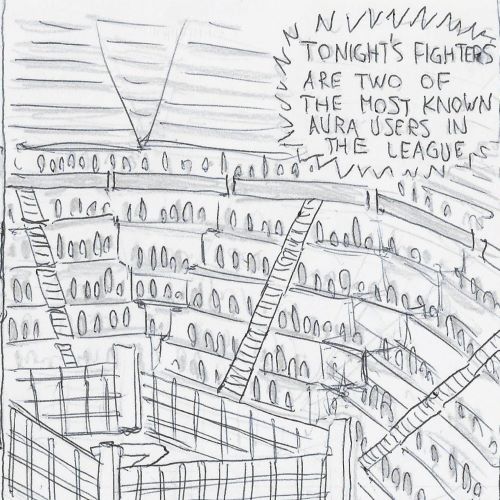 TONIGHT'S FIGHTERS
ARE TWO OF
THE MOST KNOWN
AURA USERS IN
THE LEAGUE,